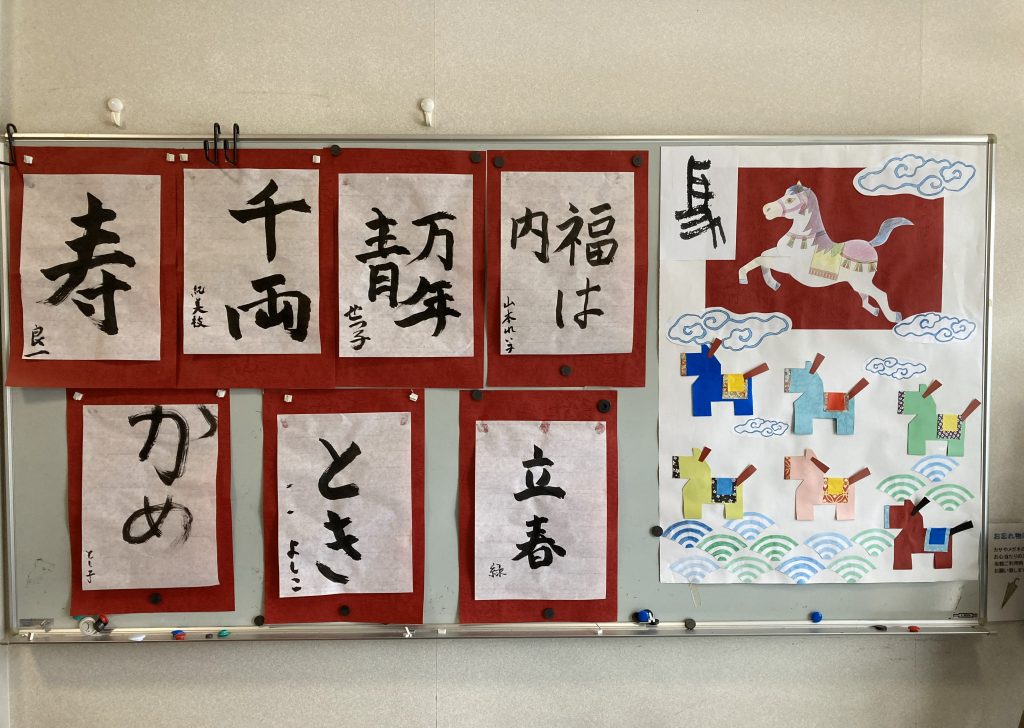 寿
良一
千両
紀美枝
万年
青
せつ子
福は
内
山本れい子
馬
かめ
とし子
とき
よしこ
立春
緑
お忘れ物